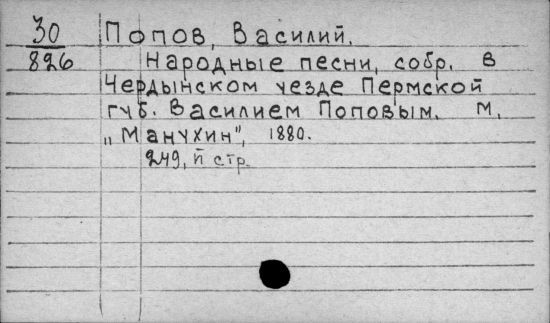 30 Попов, Василий.
826 Народные песни, собр. в
Чердынском уезде Пермской
губ. Василием Поповым. М.
„Манухин", 1880.
249, п стр.